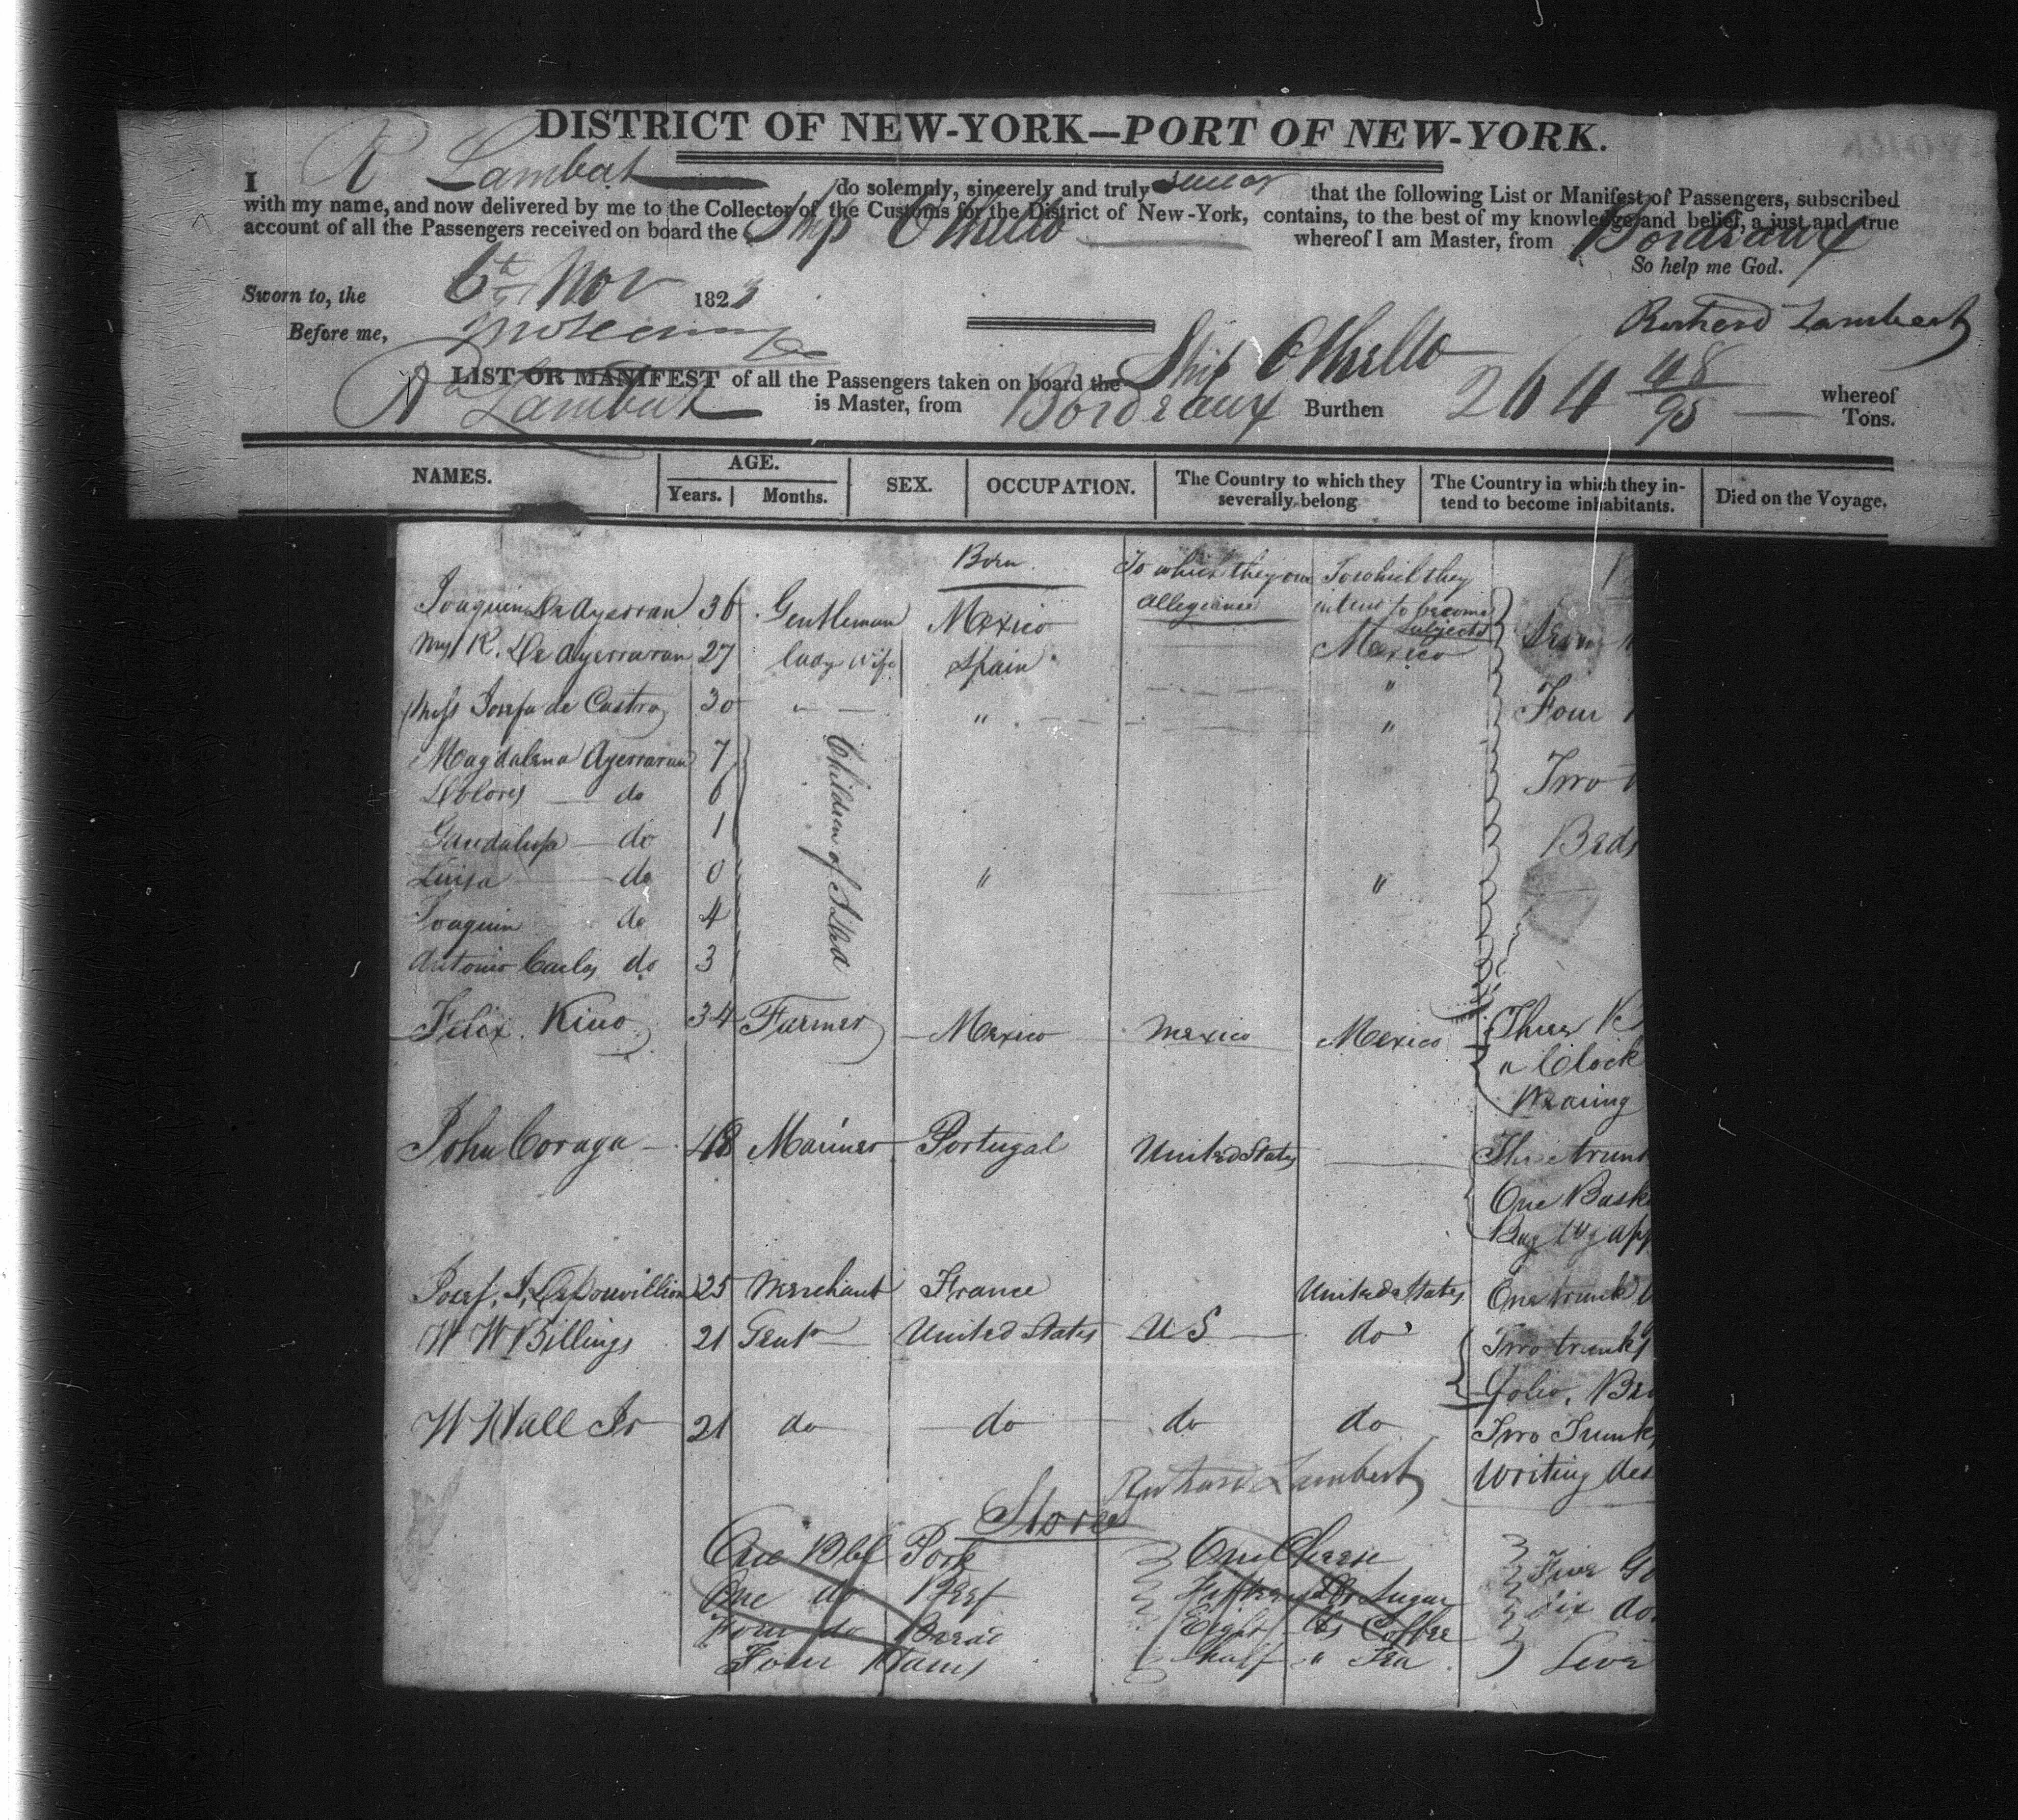 DISTRICT OF NEW-YORK—PORT OF NEW-YORK.
I R Lambert do solemnly, sincerely and truly swear that the following List or Manifest of Passengers, subscribed
with my name, and now delivered by me to the Collector of the Customs for the District of New-York, contains, to the best of my knowledge and belief, a just and true
account of all the Passengers received on board the Ship Othello whereof I am Master, from Bordeaux
So help me God.
Sworn to, the 6th Nov 1823
Before me,
Richard Lambert
LIST OR MANIFEST of all the Passengers taken on board the Ship Othello whereof
Rd Lambert is Master, from Bordeaux Burthen 264 48/95 Tons.
NAMES. AGE. SEX. OCCUPATION. The Country to which they severally belong The Country in which they intend to become inhabitants. Died on the Voyage.
Years. Months.
Born To which they owe Allegiance To which they intend to become subjects
Joaquin De Ayerraran 36 Gentleman Mexico Mexico
Mrs R. De Ayerraran 27 lady Wife Spain "
Miss Josefa de Castro 30 " " " Four
Magdalena Ayerraran 7 Children of Ditto Two
Dolores do 6
Guadalupe do 1 Beds
Luisa do 0 " "
Joaquin do 4
Antonio Carlos do 3
Felix Kino 34 Farmer Mexico Mexico Mexico Three
a Clock
Wearing
John Coraga 48 Mariner Portugal United States Three trunk
One Bask
Bag
25 Merchant France United States One trunk
W W Billings 21 Gent United States US do Two trunks
folio.
W Hall Jr 21 do do do do Two Trunks
Richard Lambert Writing des
Stores
One Bbl Pork One Cheese Five
One do Beef Fifteen Lbs Sugar Six
Four do Bread Eight lbs Coffee
Four Hams half " Tea